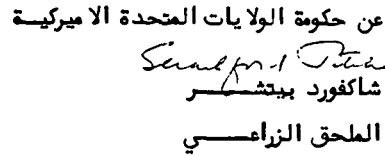 عن حكومة الولايات المتحدة الاميركية
شاكفورد بيتشر
الملحق الزراعي